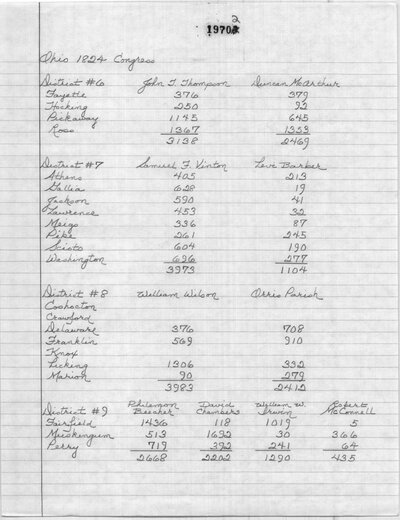 2
1970
Ohio 1824 Congress
District #6 John T. Thompson Duncan McArthur
Fayette 376 379
Hocking 250 92
Pickaway 1145 645
Ross 1367 1353
3138 2469
District #7 Samuel F. Vinton Levi Barber
Athens 405 213
Gallia 628 19
Jackson 590 41
Lawrence 453 32
Meigs 336 87
Pike 261 245
Scioto 604 190
Washington 696 277
3973 1104
District #8 William Wilson Orris Parish
Coshocton
Crawford
Delaware 376 708
Franklin 569 910
Knox
Licking 1306 332
Marion 90 279
3983 2412
District #9 Philemon Beecher David Chambers William W. Irwin Robert McConnell
Fairfield 1436 118 1019 5
Muskingum 513 1692 30 366
Perry 719 392 241 64
2668 2202 1290 435